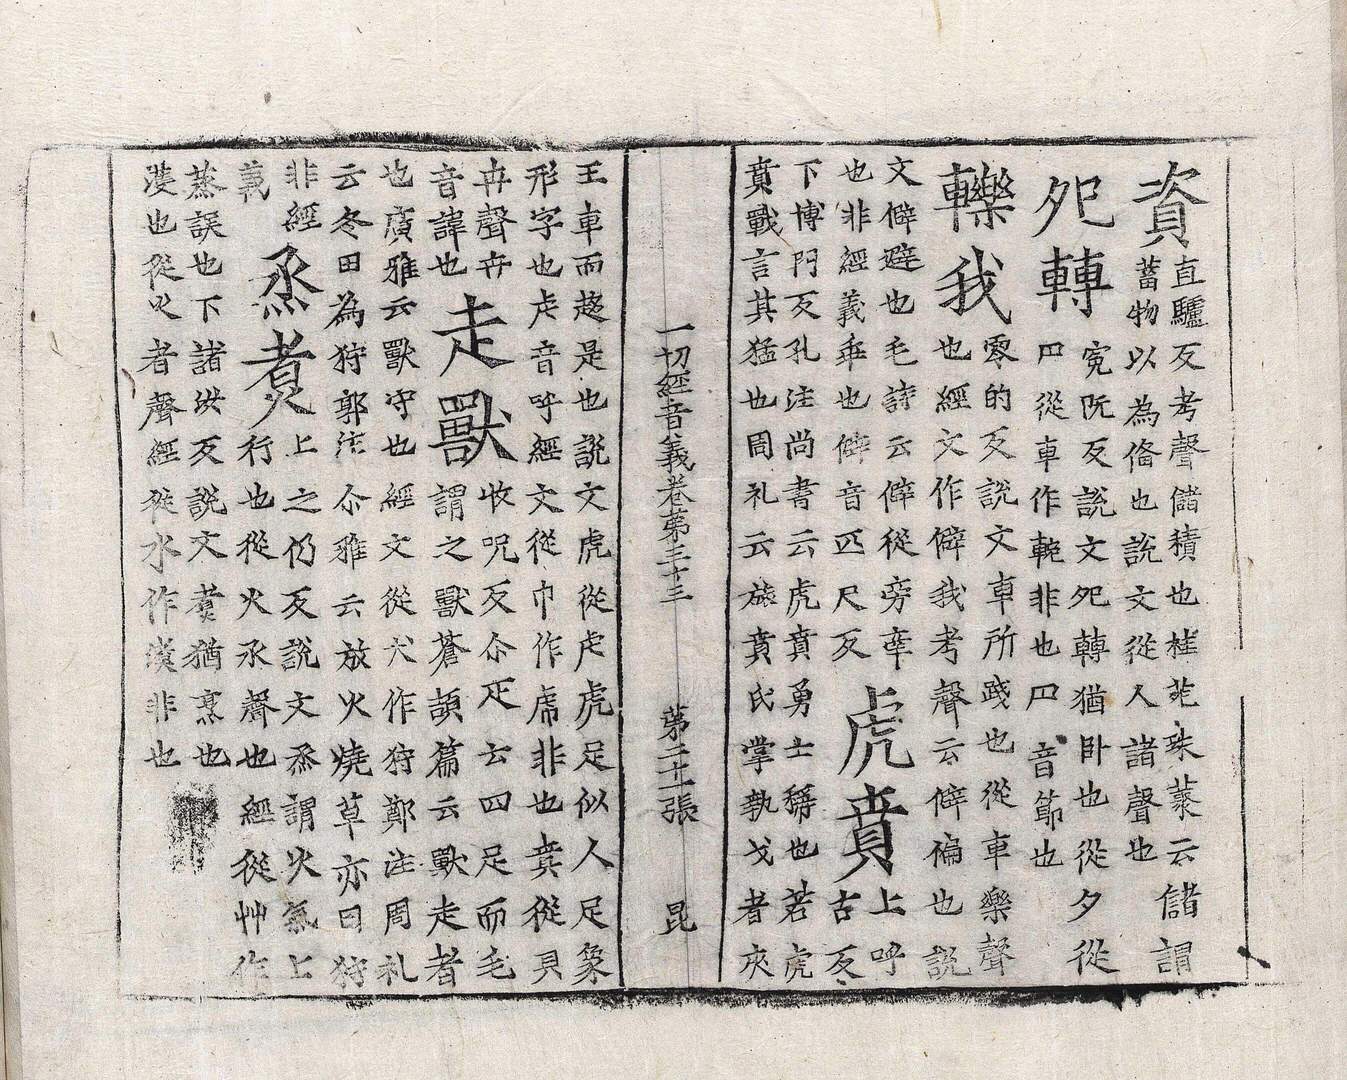 資
直驢反考聲儲積也桂苑珠蕞云儲謂
蓄物以為偹也說文從人諸聲也
夗轉
寃阮反說文夗轉猶卧也從夕從
卩從車作輓非也卩音節也
轢我
零的反說文車所踐也從車樂聲
也經文作僻我考聲云僻褊也說
文僻避也毛詩云僻從旁辜
也非經義乖也僻音匹尺反
虎賁
上呼
古反
下博門反孔注尚書云虎賁勇士稱也若虎
賁戰言其猛也周礼云旅賁氏掌執戈者夾
一切經音義卷第三十三 第二十二張 昆
王車而趍是也說文虎從虍虎足似人足象
形字也虍音呼經文從巾作席非也賁從貝
卉聲卉
音諱也
走獸
收呪反尒疋云四足而毛
謂之獸蒼頡篇云獸走者
也廣雅云獸守也經文從犬作狩鄭注周礼
云冬田為狩郭注尒雅云放火燒草亦曰狩
非經
義
烝煮
上之仍反說文烝謂火氣上
行也從火丞聲也經從艸作
蒸誤也下諸汝反說文煑猶烹也
濩也從火者聲經從水作非也